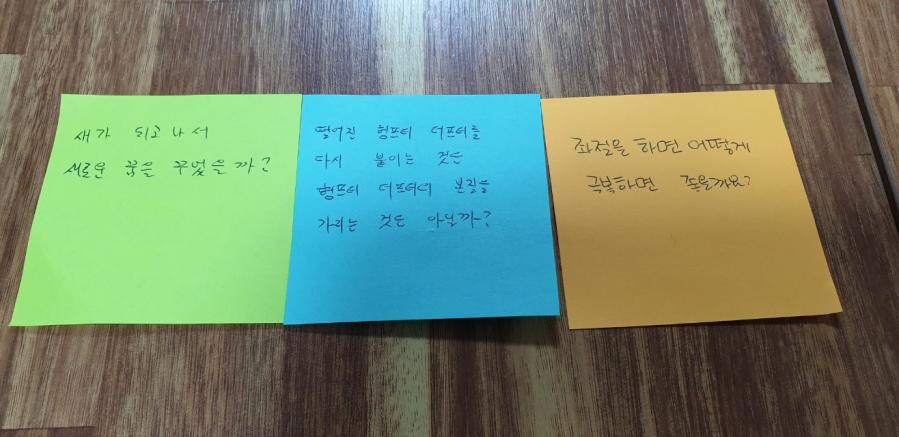 새가 되고 나서
새로운 꿈을 꾸었을까?
떨어진 험프티 더프티를
다시 붙이는 것은
험프티 더프티의 본질을
가리는 것은 아닐까?
좌절을 하면 어떻게
극복하면 좋을까요?